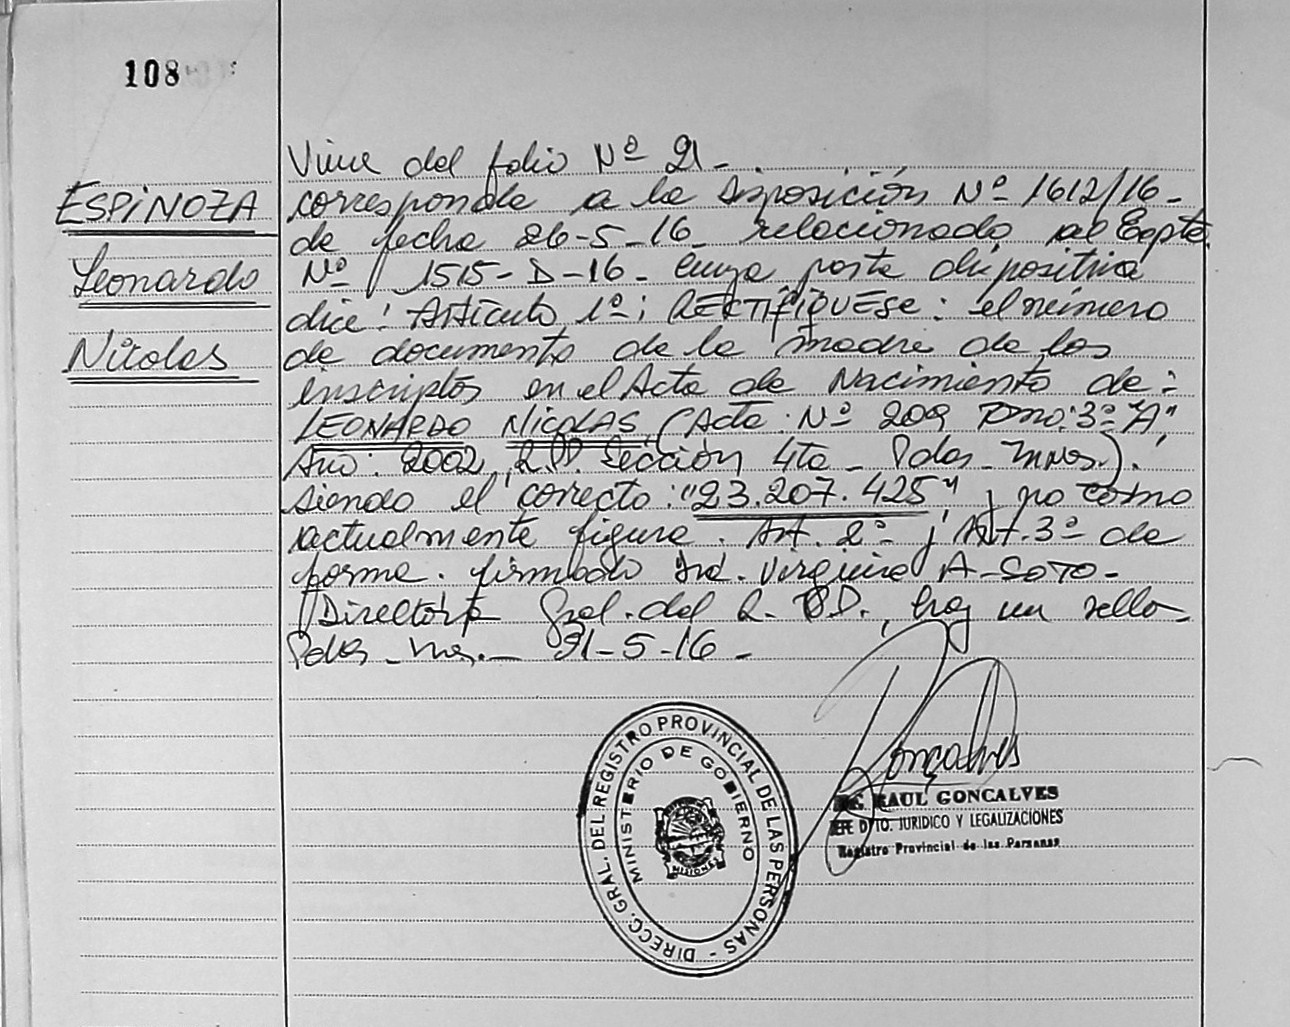 108
ESPINOZA
Leonardo
Nicolas
Viene del folio Nº 21-
corresponde a la Disposición Nº 1612/16-
de fecha 26-5-16- relacionado al Expte.
Nº 1515-D-16- cuya parte dispositiva
dice: Artículo 1º: RECTIFIQUESE: el número
de documento de la madre de los
inscriptos en el Acta de Nacimiento de:
LEONARDO NICOLAS (Acta: Nº 209 Tomo: 3º "A",
Año: 2002, R.P.P. Sección 4ta - Pdas - Mnes.).
siendo el correcto: "23.207.425" y no como
actualmente figura. Art. 2º y Art. 3º de
forma. firmado Virginia A-SOTO-
Directora Gral. del R.P.P., hay un sello-
Pdas - Mnes. - 31-5-16-
DIRECC. GRAL. DEL REGISTRO PROVINCIAL DE LAS PERSONAS -
MINISTERIO DE GOBIERNO
MISIONES
Gonçalves
RAUL GONCALVES
JEFE DPTO. JURIDICO Y LEGALIZACIONES
Registro Provincial de las Personas